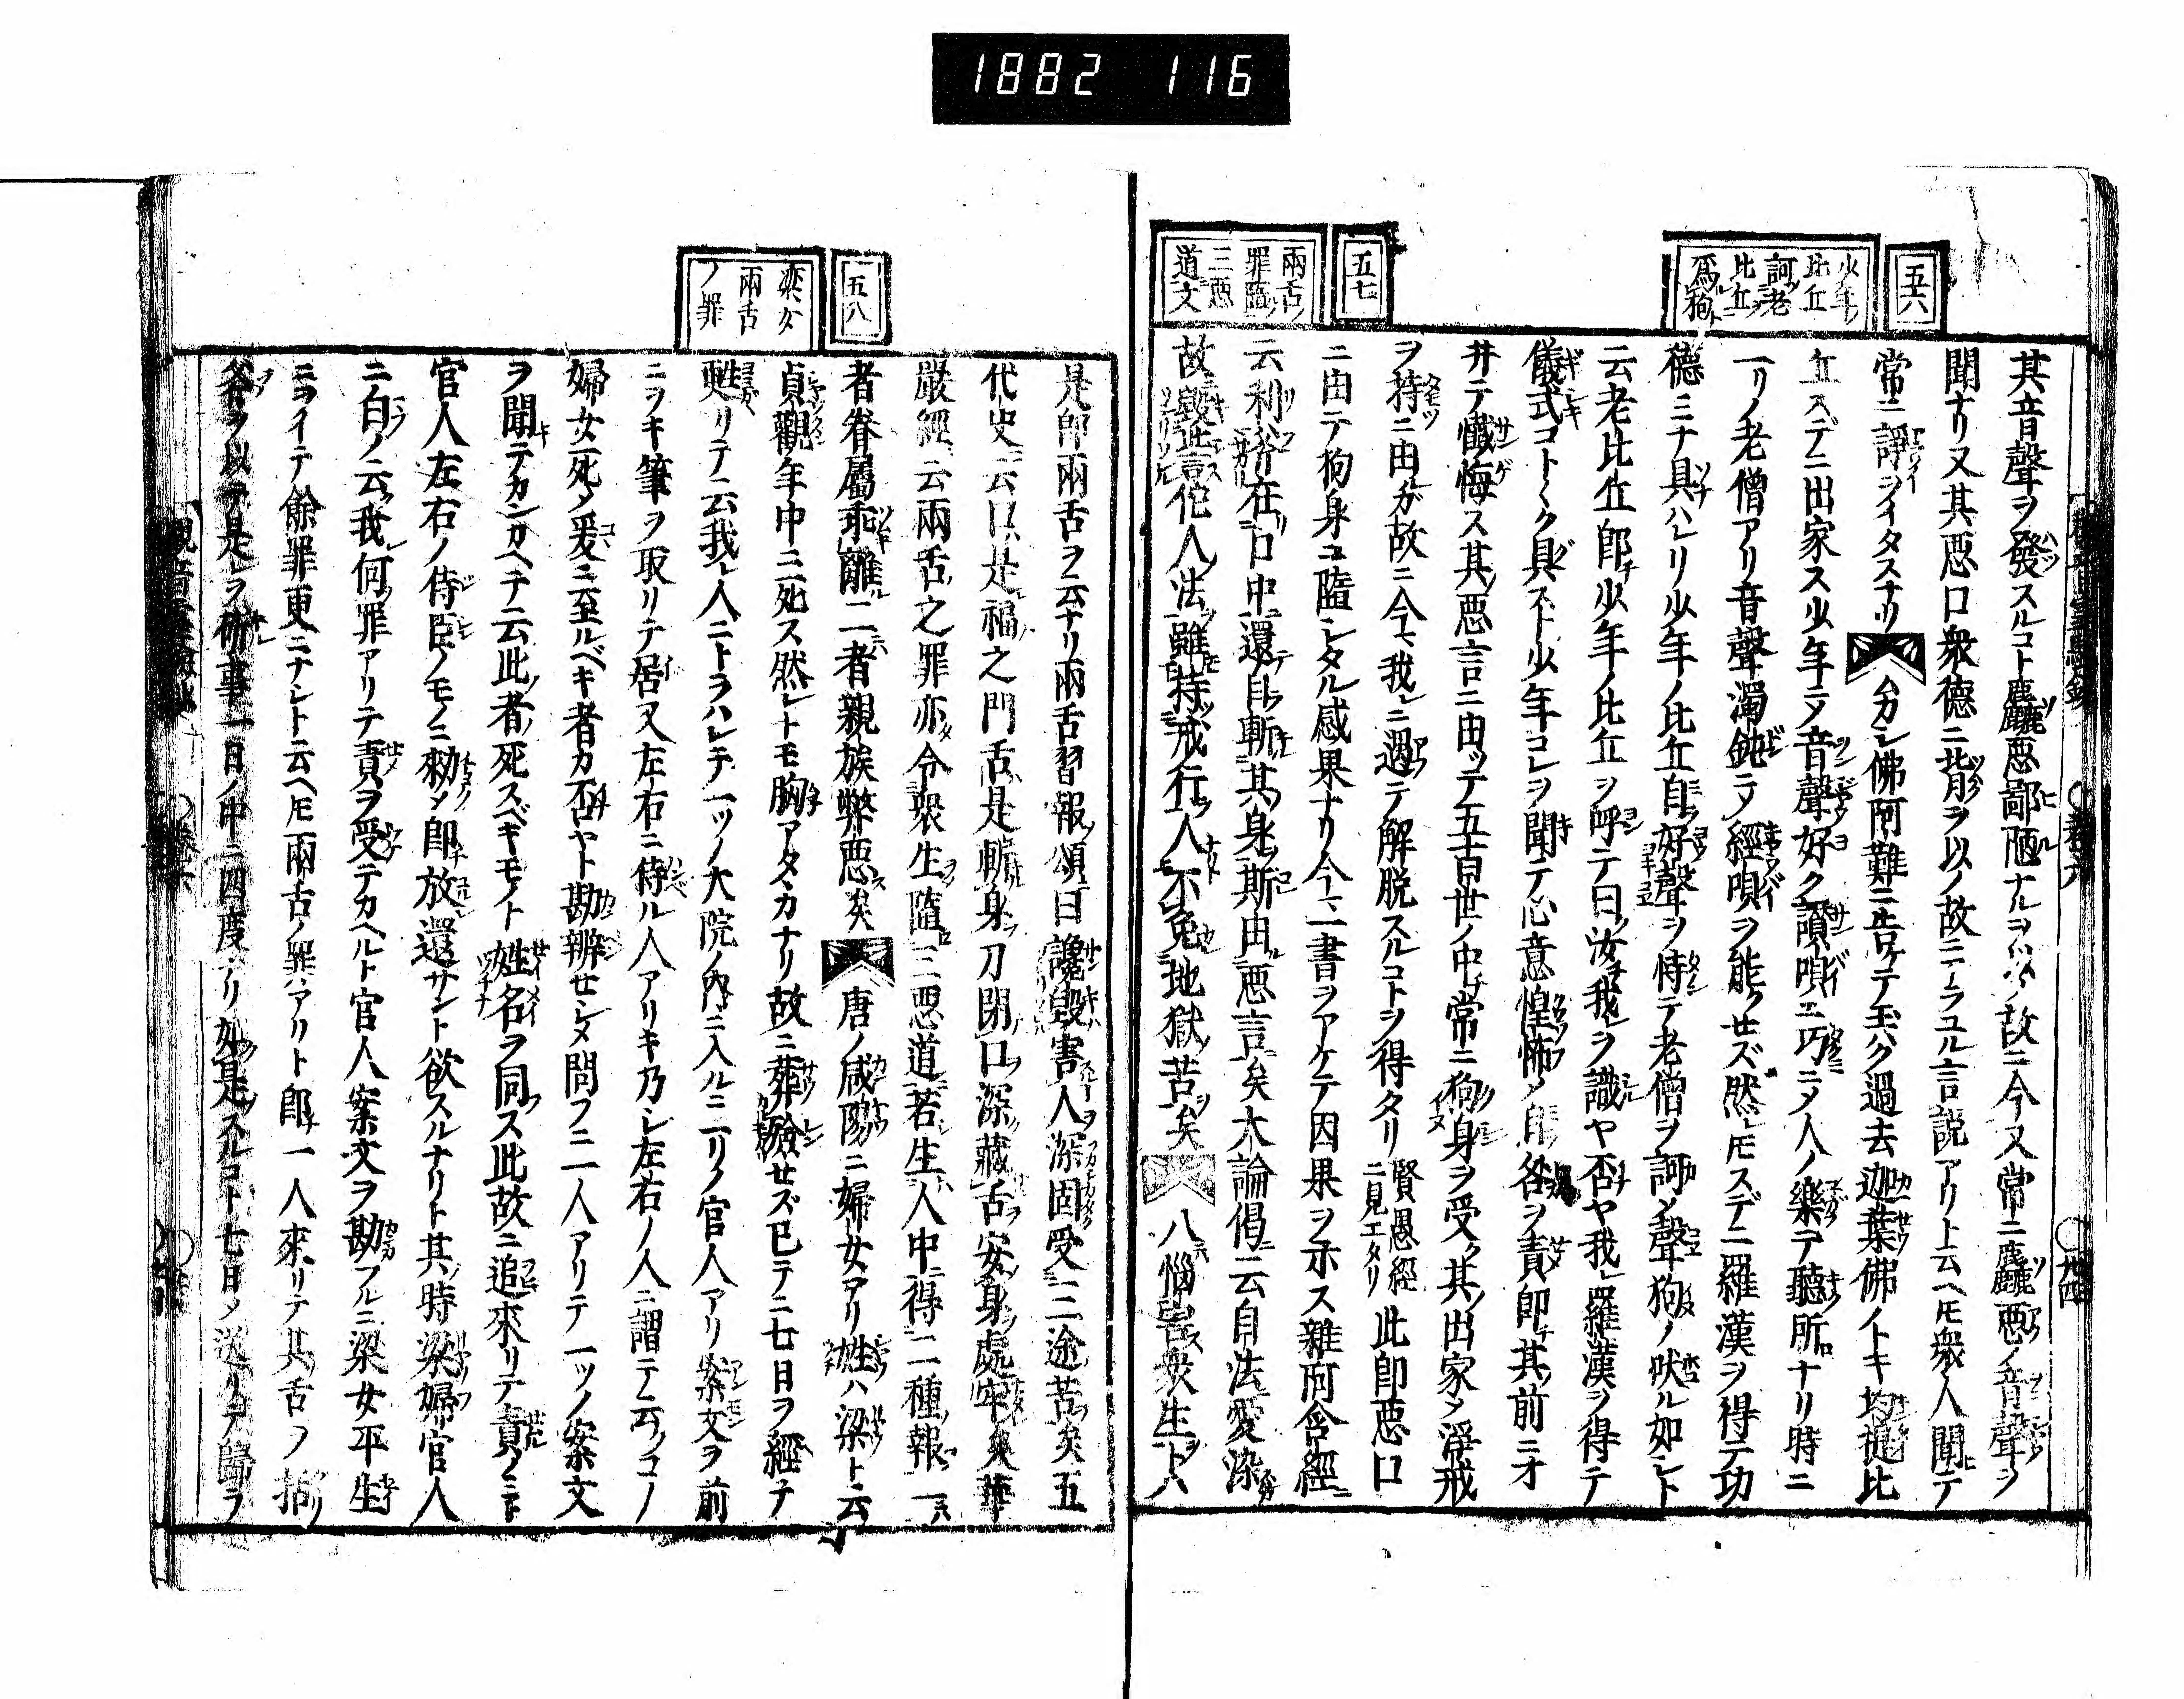 1882 116
五六
少年ノ
比丘
訶老
比丘ヲ
爲狗ト
五七
兩舌ノ
罪隨
三悪
道文
其音聲ヲ發スルコト麤悪鄙陋ナルヲ以ノ故ニ今又常ニ麤悪ノ音聲ヲ
聞ナリ又其悪口衆德ニ背ヲ以ノ故ニアラユル言説アリト云ヘ𪜈衆人聞テ
常ニ諍ヲイタスナリ
佛阿難ニ告ケテ玉ハク過去迦葉佛ノトキ均提比
丘スデニ出家ス少年ニメ音聲好ク讃唄ニ巧ニメ人ノ樂テ聽所ナリ時ニ
一リノ老僧アリ音聲濁鈍ニメ經唄ヲ能クセズ然レ𪜈スデニ羅漢ヲ得テ功
德ミナ具ハレリ少年ノ比丘自好聲ヲ恃テ老僧ヲ訶メ聲狗ノ吠ル如シト
云老比丘即チ少年ノ比丘ヲ呼テ曰ク汝我レヲ識ヤ否ヤ我レ羅漢ヲ得テ
儀式コトヽク具スト少年コレヲ聞テ心意惶怖メ自各ヲ責即チ其前ニオ
井テ懺悔ス其ノ悪言ニ由ッテ五百世ノ中チ常ニ狗身ヲ受ク其ノ出家メ淨戒
ヲ持ニ由ガ故ニ今我レニ遇テ解脱スルコトヲ得タリ賢愚經ニ見エタリ此即悪口
ニ由テ狗身ニ隨シタル感果ナリ今二書ヲアケテ因果ヲ示ス雜阿含經ニ
云利斧在口中還テ自斬其身ヲ斯由悪言矣大論偈ニ云自法愛染
故毀呰佗人法ヲ雖持戒行人不免地獄苦矣
八惱害衆生ト八
五八
梁女
兩舌
ノ罪
是即兩舌ヲ云ナリ兩舌習報ノ頌曰讒毀害人ヲ深固受三途苦矣五
代史云口是福之門舌是斬身刀閉口ヲ深藏舌ヲ安身處牢矣華
嚴經云兩舌之罪亦令衆生隨三悪道若生人中得二種報一ハ
者眷屬乖離二者親族弊悪矣
唐ノ咸陽ニ婦女アリ姓ハ梁ト云
貞觀年中ニ死ス然レトモ胸アタヽカナリ故ニ葬殮セズ已テニ七日ヲ經テ
甦リテ云我レ人ニトラハレテ一ツノ大院ノ内ニ入ルニ一リノ官人アリ案文ヲ前
ニヲキ筆ヲ取リテ居ス左右ニ侍ル人アリキ乃シ左右ノ人ニ謂テ云ノコノ
婦女死メ爰ニ至ルベキ者カ否ヤト勘辨セシメ問フニ一人アリテ一ツノ案文
ヲ聞テカンカヘテ云此者死スベキモノト姓名ヲ同ス此故ニ追來リテ責ノミト
官人左右ノ侍臣ノモノニ勑メ即放還サント欲スルナリト其時梁婦官人
ニ白メ云我レ何罪アリテ責ヲ受テカヘルト官人案文ヲ勘フルニ梁女平生
ニヲイテ餘罪更ニナシト云ヘ𪜈兩舌ノ罪アリト即一人來リテ其舌ヲ
斧ヲ以テ是レヲ斫事一日ノ中ニ四度ナリ如是スルコト七日メ送リテ歸ラ